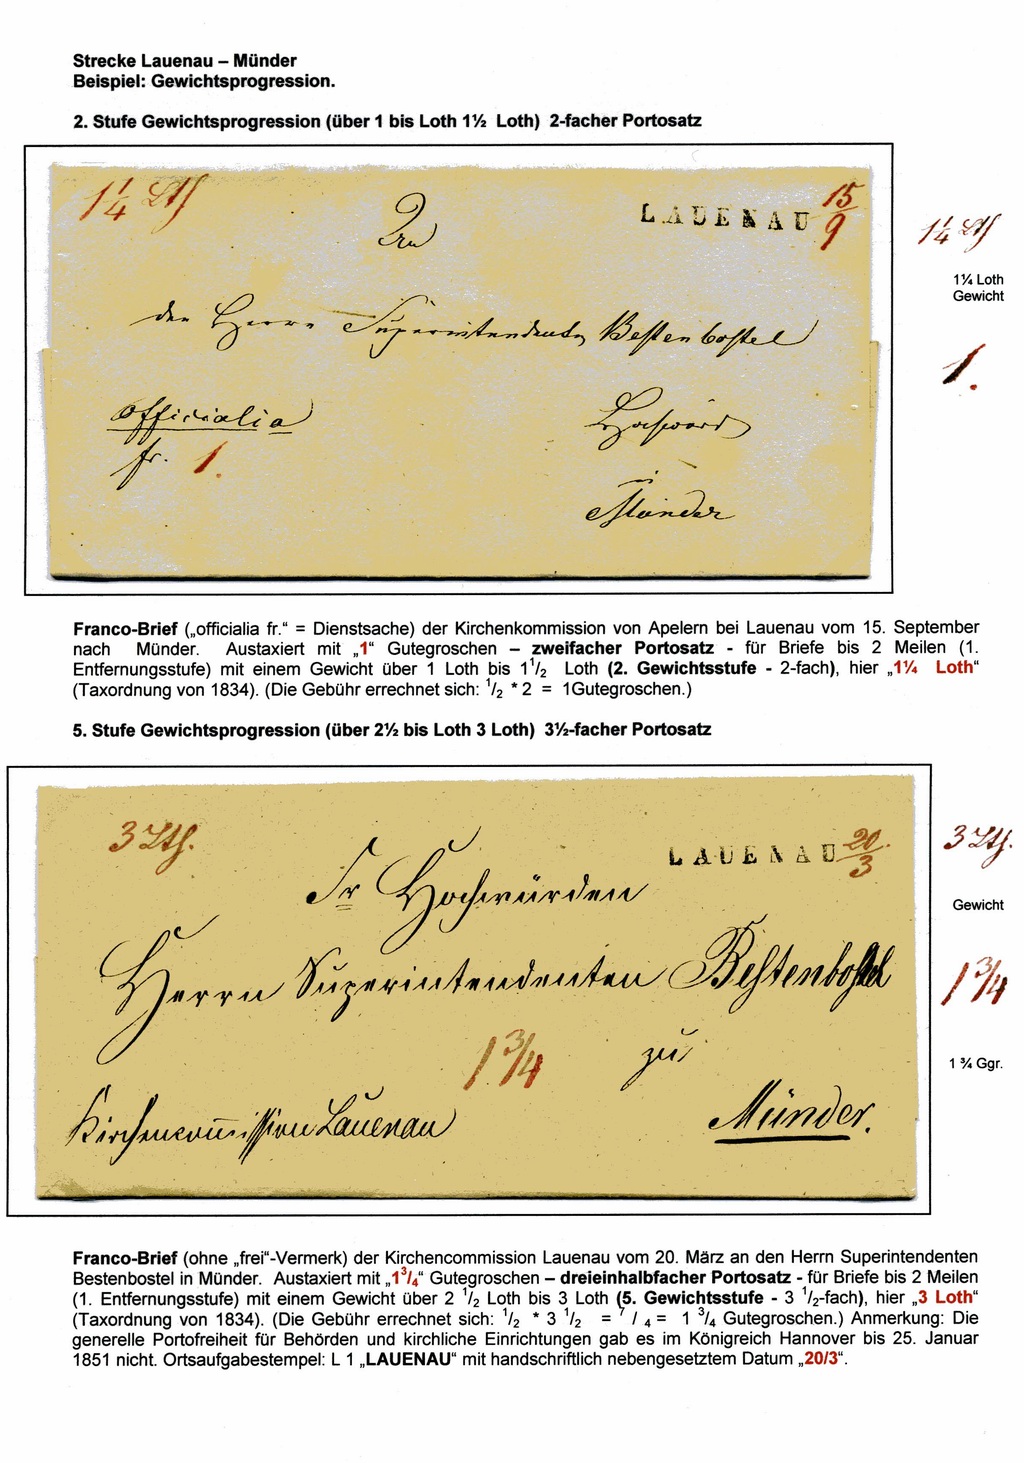 Strecke Lauenau – Münder
Beispiel: Gewichtsprogression.
2. Stufe Gewichtsprogression (über 1 bis Loth 1½ Loth) 2-facher Portosatz
1¼ Lth
LAUENAU 15/9
An
den Herrn Superintendenten Bestenbostel
officialia
Hochwürd
fr. 1.
in
Münder
1¼ Lth
1¼ Loth
Gewicht
1.
Franco-Brief („officialia fr.“ = Dienstsache) der Kirchenkommission von Apelern bei Lauenau vom 15. September
nach Münder. Austaxiert mit „1“ Gutegroschen – zweifacher Portosatz - für Briefe bis 2 Meilen (1.
Entfernungsstufe) mit einem Gewicht über 1 Loth bis 1 1/2 Loth (2. Gewichtsstufe - 2-fach), hier „1¼ Loth“
(Taxordnung von 1834). (Die Gebühr errechnet sich: 1/2 * 2 = 1Gutegroschen.)
5. Stufe Gewichtsprogression (über 2½ bis Loth 3 Loth) 3½-facher Portosatz
3 Lth.
LAUENAU 20/3.
Sr Hochwürden
Herrn Superintendenten Bestenbostel
1 3/4
zu
Kirchencommission Lauenau
Münder.
3 Lth.
Gewicht
1 3/4
1 ¾ Ggr.
Franco-Brief (ohne „frei“-Vermerk) der Kirchencommission Lauenau vom 20. März an den Herrn Superintendenten
Bestenbostel in Münder. Austaxiert mit „1 3/4“ Gutegroschen – dreieinhalbfacher Portosatz - für Briefe bis 2 Meilen
(1. Entfernungsstufe) mit einem Gewicht über 2 1/2 Loth bis 3 Loth (5. Gewichtsstufe - 3 1/2-fach), hier „3 Loth“
(Taxordnung von 1834). (Die Gebühr errechnet sich: 1/2 * 3 1/2 = 7 / 4 = 1 3/4 Gutegroschen.) Anmerkung: Die
generelle Portofreiheit für Behörden und kirchliche Einrichtungen gab es im Königreich Hannover bis 25. Januar
1851 nicht. Ortsaufgabestempel: L 1 „LAUENAU“ mit handschriftlich nebengesetztem Datum „20/3“.